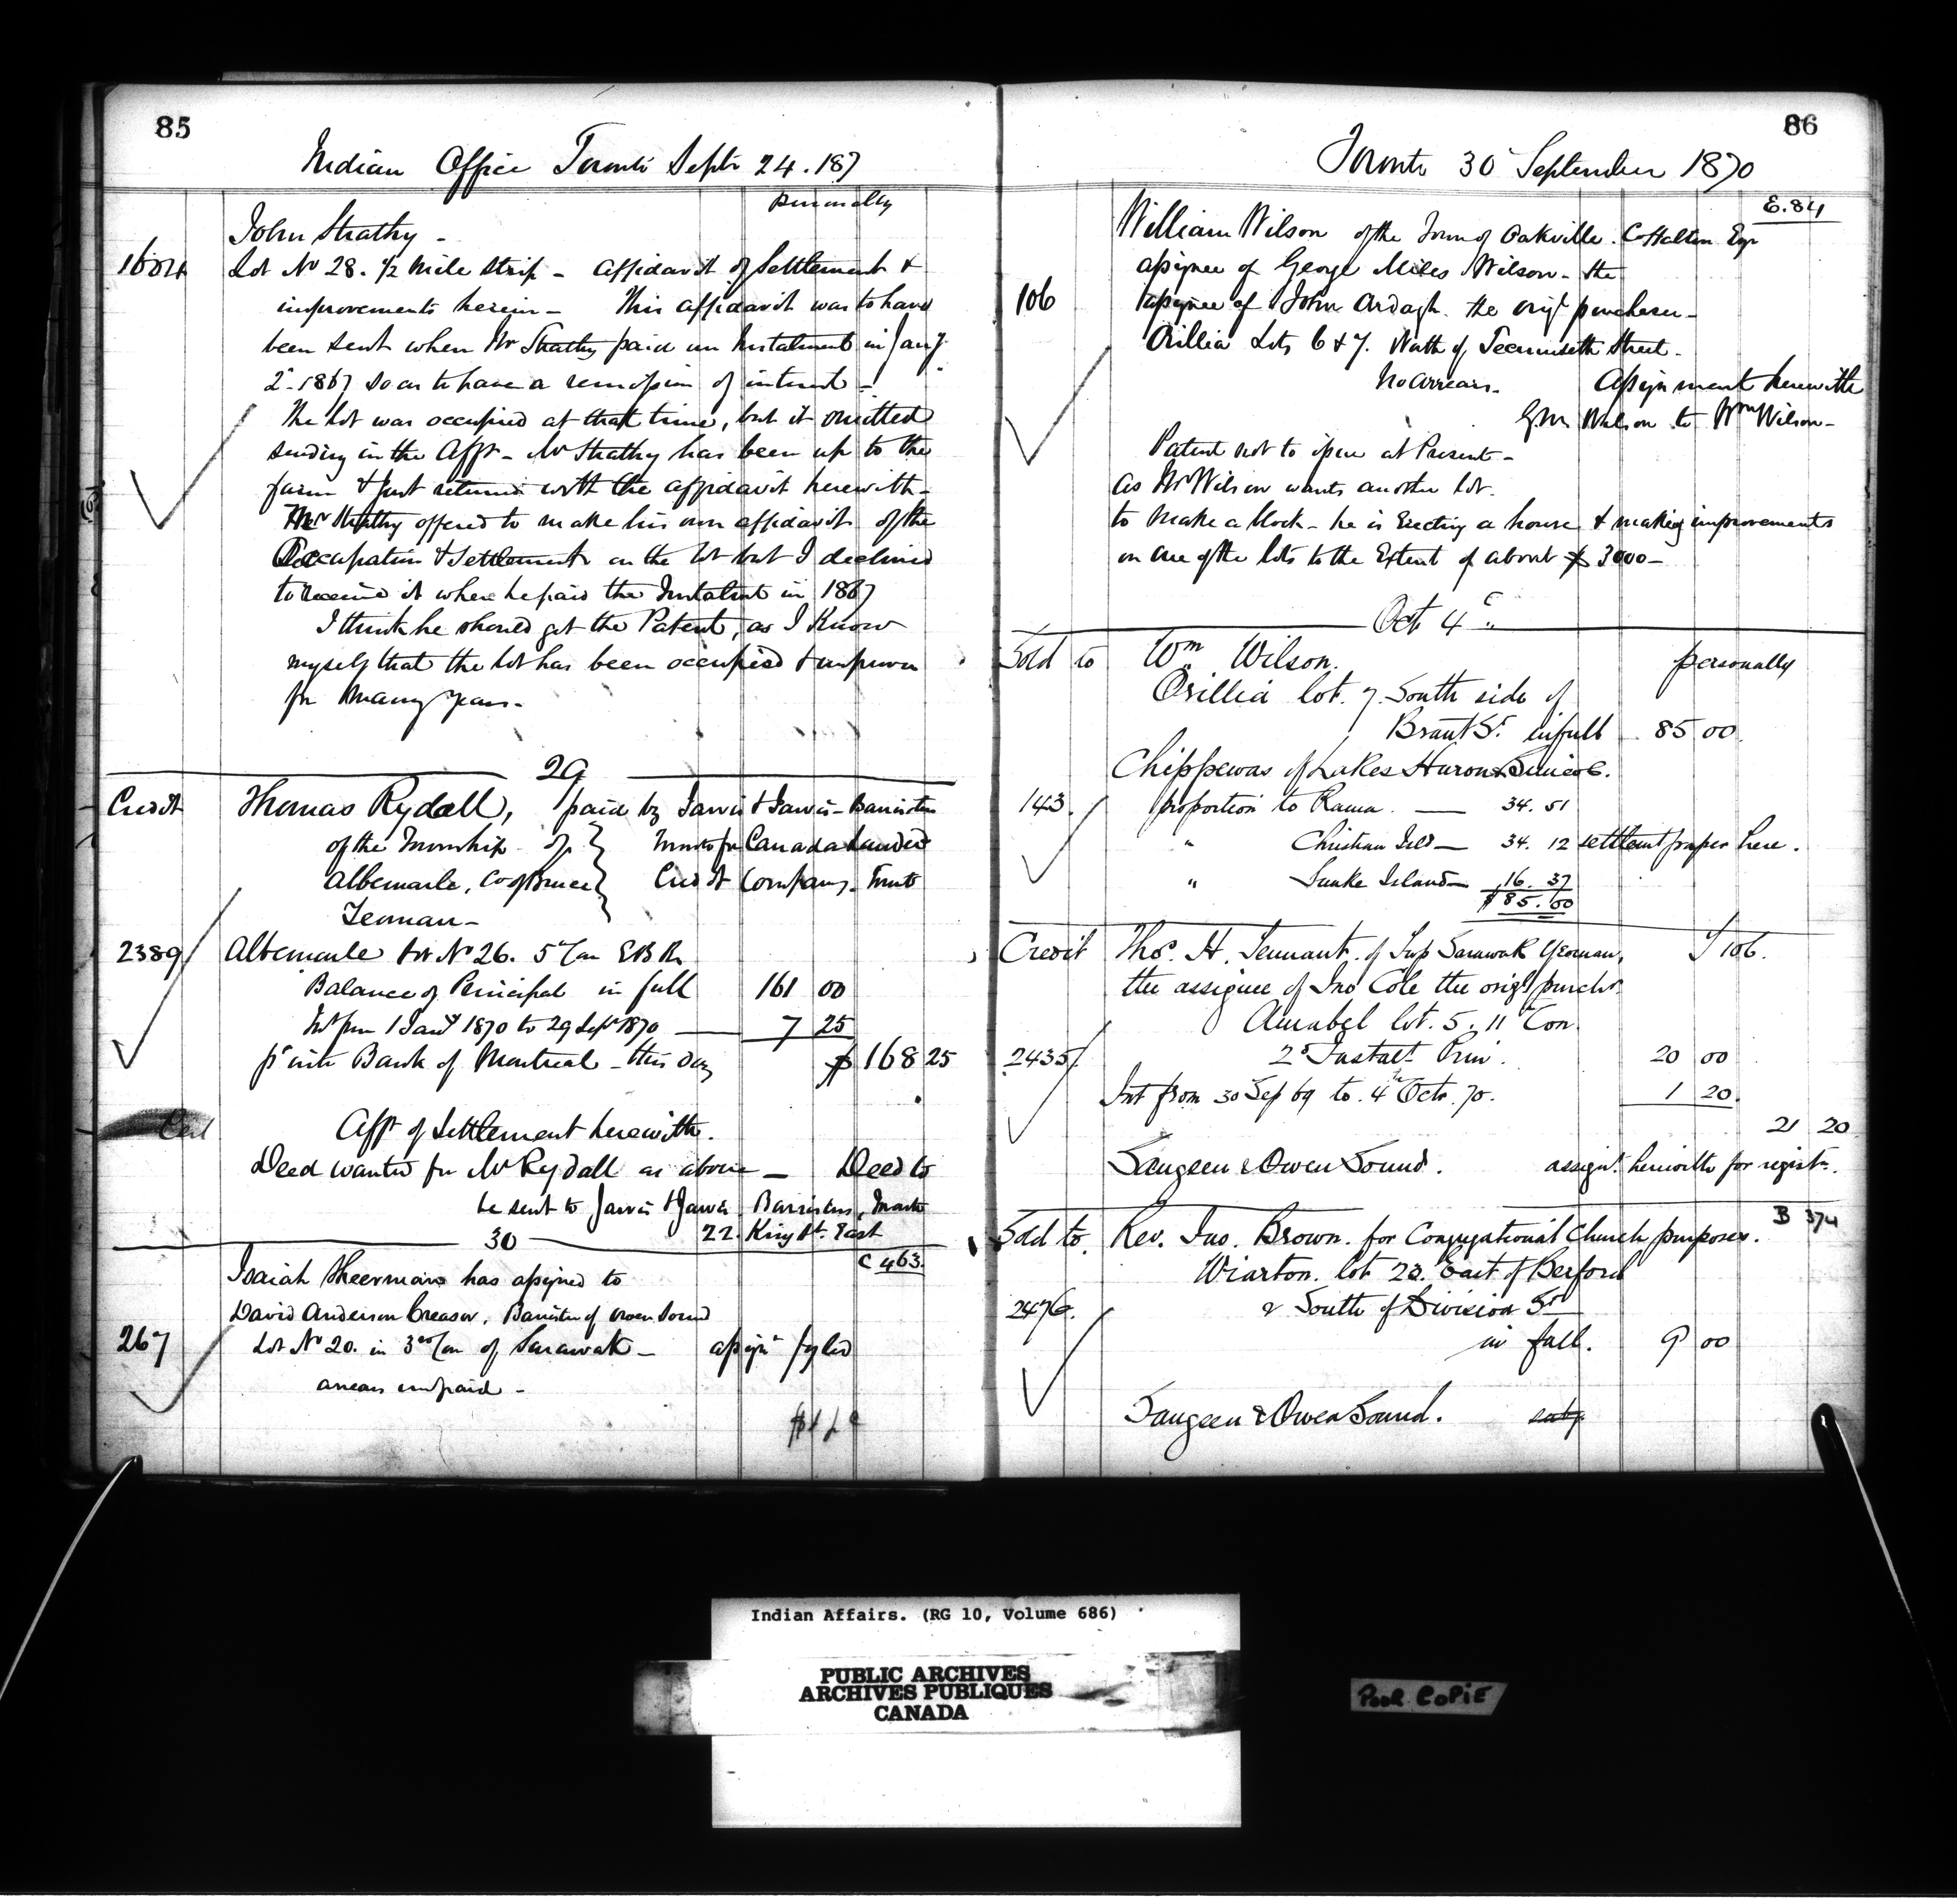 85
Indian Office Toronto Septr 24. 187
Personally
John Strathy -
Lot No 28. 1/2 Mile Strip - Affidavit of Settlement &
improvements herein - This affidavit was to have
been sent when Mr Strathy paid an Instalment in Jany
2d 1867 so as to have a remission of interest -
The Lot was occupied at that time, but it omitted
sending in the Afft - Mr Strathy has been up to the
farm & just returned with the affidavit herewith -
Mr Strathy offered to make his own affidavit of the
Occupation & Settlement on the lot but I declined
to receive it when he paid the Instalment in 1867
I think he should get the Patent, as I Know
myself that the Lot has been occupied & improved
for Many Years -
29
Credit Thomas Rydall, paid by Jarvis & Jarvis - Barristers
of the Township of Toronto for Canada Landed
Albemarle, Co of Bruce Credit Company - Toronto
Yeoman -
2389 Albemarle Lot No 26. 5th Con E B R
Balance of Principal in full 161 00
Int from 1 Jany 1870 to 29 Sept 1870 7 25
pd into Bank of Montreal - this day $ 168 25
Afft of Settlement herewith.
Deed wanted for Mr Rydall as above - Deed to
be sent to Jarvis & Jarvis Barristers, Toronto
22. King St. East
30
C 463.
Isaiah Sheerman has assigned to
David Anderson Creasor, Barrister of Owen Sound
267 Lot No 20. in 3rd Con of Sarawak - assignt fyled
arrears unpaid -
86
Toronto 30 September 1870
E. 84
William Wilson of the Town of Oakville. Co Halton Esqr
assignee of George Miles Wilson - the
106 assignee of John Ardagh. the origl purchaser -
Orillia Lots 6 & 7. North of Tecumseth Street -
No arrears. Assignment herewith
G. M. Wilson to Wm Wilson -
Patent not to issue at Present -
as Mr Wilson wants another lot.
to make a block - he is Erecting a house & making improvements
on one of the lots to the Extent of about $ 3000 -
Oct 4
Sold to Wm Wilson. personally
Orillia lot. 7. South side of
Brant St. in full 85 00
Chippewas of Lakes Huron & Simcoe.
143. proportion to Rama. — 34. 51
" Christian Isld — 34. 12 settlemt paper here.
" Snake Island — 16. 37
$ 85. 00
Credit Thos. H. Tennant. of Twp Sarawak Yeoman, T 106.
the assignee of Jno Cole the origl purchr.
Amabel lot. 5. 11th Con.
2435 2d Instalt Prin. 20 00
Int from 30 Sep 69 to. 4th Octr. 70. 1 20
21 20
Saugeen & Owen Sound. assignt. herewith for registn.
B 374
Sold to. Rev. Jno. Brown. for Congregational Church purposes.
Wiarton. lot 23. East of Berford
2476. & South of Division St
in full. 9 00
Saugeen & Owen Sound.
Indian Affairs. (RG 10, Volume 686)
PUBLIC ARCHIVES
ARCHIVES PUBLIQUES
CANADA
POOR COPIE